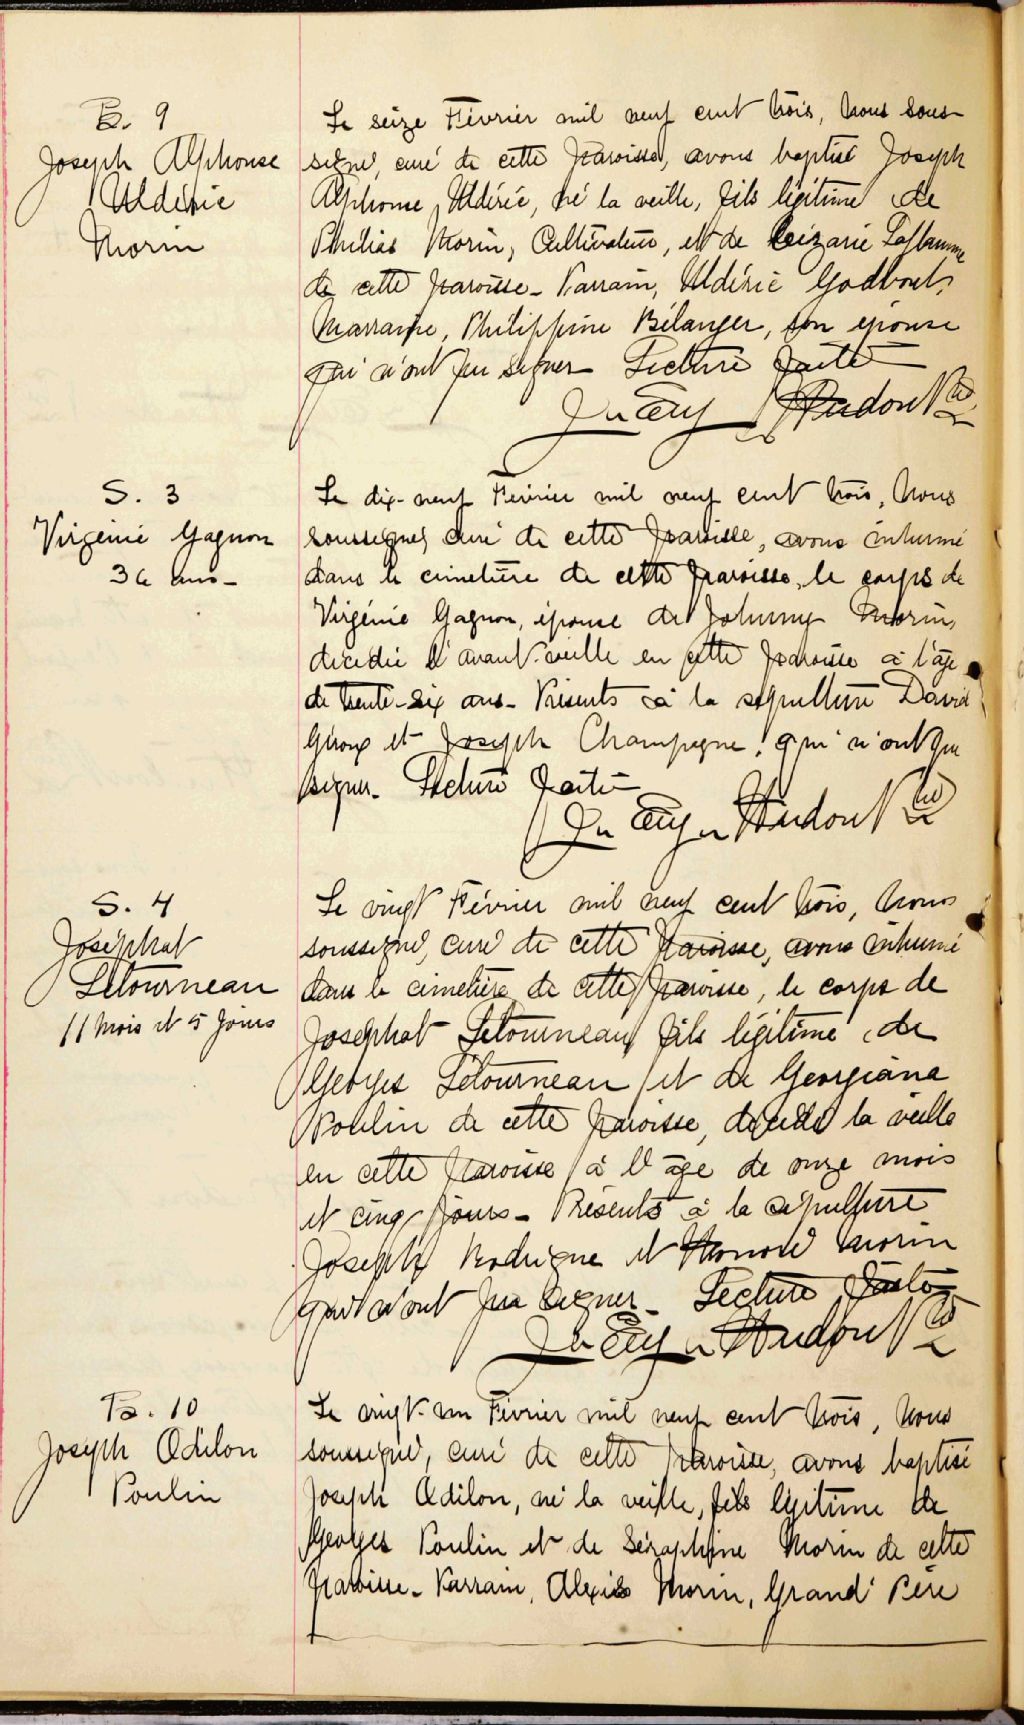 B. 9
Joseph Alphonse
Uldéric
Morin
Le seize Février mil neuf cent trois, Nous sous-
signé, curé de cette paroisse, avons baptisé Joseph
Alphonse Uldéric, né la veille, fils légitime de
Philias Morin, Cultivateur, et de Leizarie Laflamme
de cette paroisse - Parrain, Uldéric Godbout,
Marraine, Philippine Bélanger, son épouse
qui n'ont pu signer Lecture faite
Jn Eug Hudon Ptr
S. 3
Virgénie Gagnon
36 ans -
Le dix-neuf Février mil neuf cent trois, Nous
soussigné, curé de cette paroisse, avons inhumé
dans le cimetière de cette paroisse, le corps de
Virgénie Gagnon, épouse de Johnny Morin,
décédée l'avant-veille en cette paroisse à l'âge
de trente-six ans - Présents à la sépulture David
Giroux et Joseph Champagne, qui n'ont pu
signer - Lecture faite -
Jn Eug Hudon Ptr
S. 4
Joséphat
Létourneau
11 mois et 5 jours
Le vingt Février mil neuf cent trois, Nous
soussigné, curé de cette paroisse, avons inhumé
dans le cimetière de cette paroisse, le corps de
Joséphat Létourneau fils légitime de
Georges Létourneau et de Georgiana
Poulin de cette paroisse, décédé la veille
en cette paroisse à l'âge de onze mois
et cinq jours - Présents à la sépulture
Joseph Rodrigue et Honoré Morin
qui n'ont pu signer - Lecture faite -
Jn Eug Hudon Ptr
B. 10
Joseph Odilon
Poulin
Le vingt-un Février mil neuf cent trois, Nous
soussigné, curé de cette paroisse, avons baptisé
Joseph Odilon, né la veille, fils légitime de
Georges Poulin et de Séraphine Morin de cette
paroisse - Parrain, Alexis Morin, Grand' Père